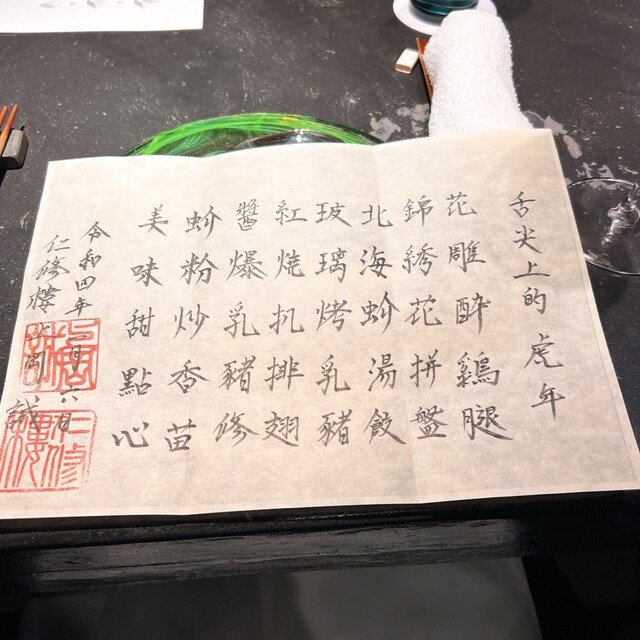 舌尖上的虎年
花雕酔鷄腿
錦綉花拼盤
北海蚧湯餃
玻璃烤乳豬
紅焼扒排翅
醬爆乳豬修
蚧粉炒香苗
美味甜點心
令和四年二月十六日
仁修樓 上岡誠